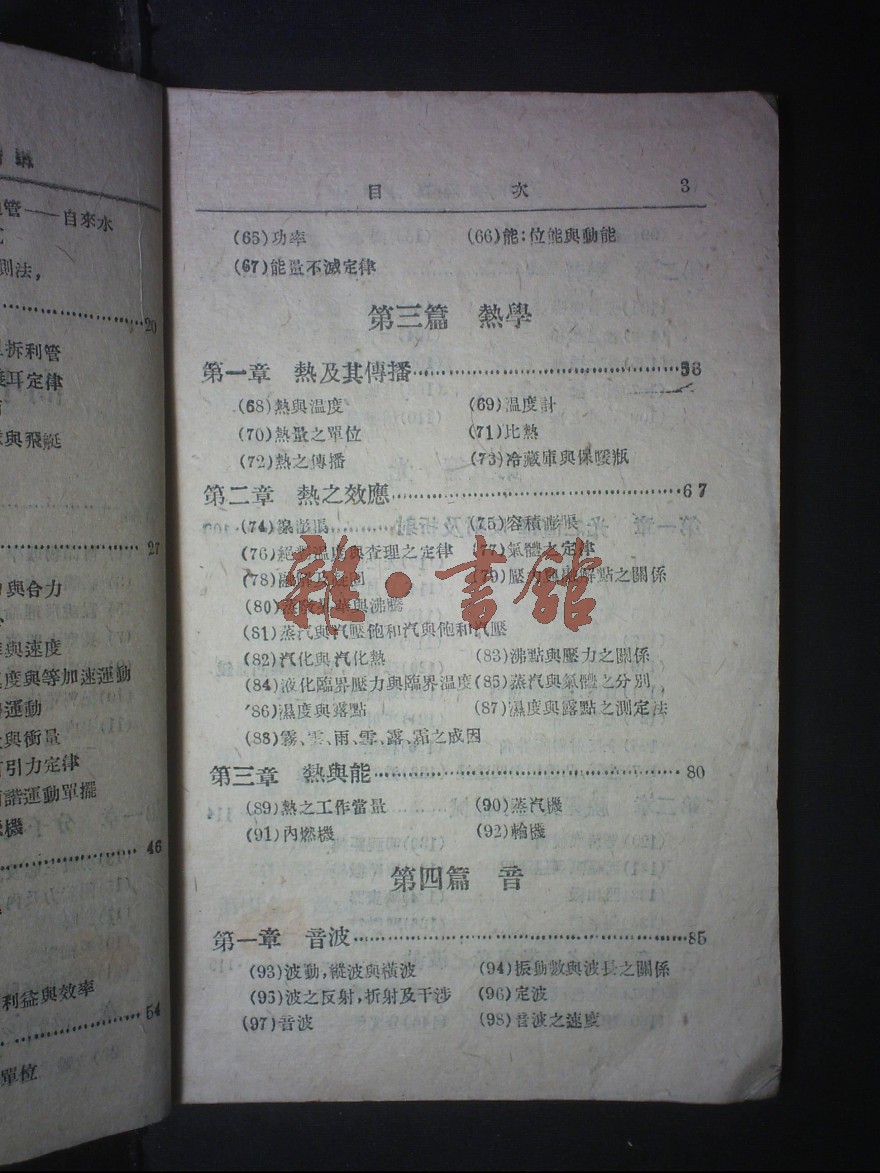 管——自來水
則法,
20
拆利管
耳定律
與飛艇
27
與合力
與速度
度與等加速運動
運動
與衝量
引力定律
諧運動單擺
機
46
利益與效率
54
單位
目 次 3
(65)功率 (66)能:位能與動能
(67)能量不滅定律
第三篇 熱學
第一章 熱及其傳播
(68)熱與温度 (69)温度計
(70)熱量之單位 (71)比熱
(72)熱之傳播 (73)冷藏庫與保暖瓶
第二章 熱之效應 67
(74)線膨脹 (75)容積膨脹
(76)絕對温度與查理之定律 (77)氣體之定律
(78)融解及凝固 (79)壓力與融解點之關係
(80)蒸發昇華與沸騰
(81)蒸汽與汽壓飽和汽與飽和汽壓
(82)汽化與汽化熱 (83)沸點與壓力之關係
(84)液化臨界壓力與臨界温度 (85)蒸汽與氣體之分別
(86)濕度與露點 (87)濕度與露點之測定法
(88)霧、雲、雨、雪、露、霜之成因
第三章 熱與能 80
(89)熱之工作當量 (90)蒸汽機
(91)內燃機 (92)輪機
第四篇 音
第一章 音波 85
(93)波動,縱波與橫波 (94)振動數與波長之關係
(95)波之反射,折射及干涉 (96)定波
(97)音波 (98)音波之速度
雜·書館